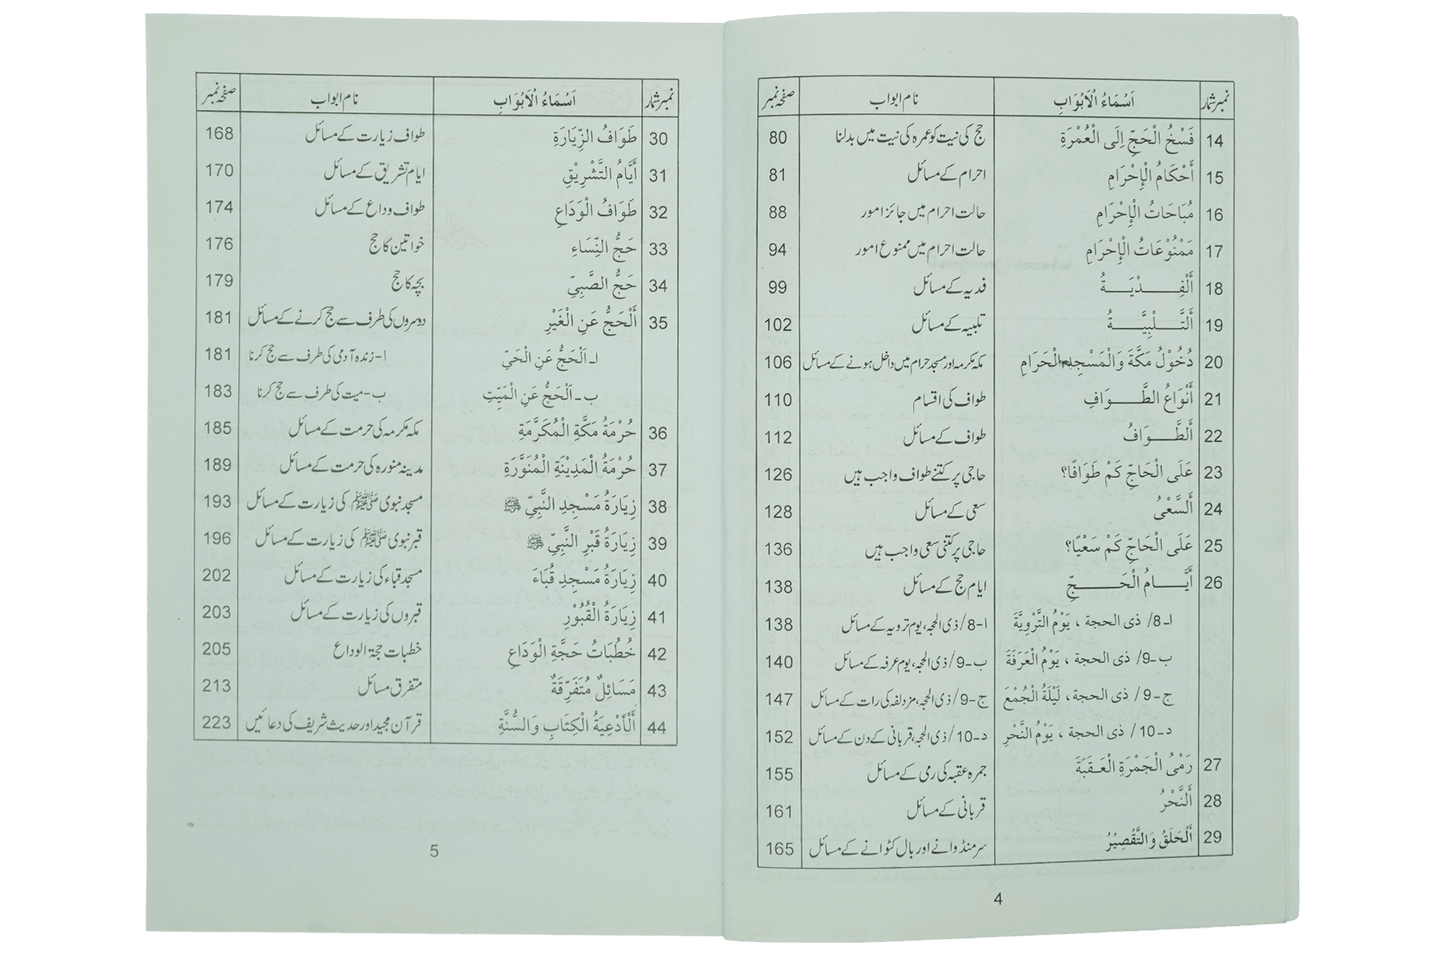 نمبر شمار اَسْمَاءُ الْاَبْوَابِ نام ابواب صفحہ نمبر
14 فَسْخُ الْحَجِّ اِلَی الْعُمْرَةِ حج کی نیت کو عمرہ کی نیت میں بدلنا 80
15 أَحْكَامُ الْإِحْرَامِ احرام کے مسائل 81
16 مُبَاحَاتُ الْإِحْرَامِ حالت احرام میں جائز امور 88
17 مَمْنُوْعَاتُ الْإِحْرَامِ حالت احرام میں ممنوع امور 94
18 أَلْفِـــدْيَـــةُ فدیہ کے مسائل 99
19 أَلتَّـــلْبِيَّـــةُ تلبیہ کے مسائل 102
20 دُخُوْلُ مَكَّةَ وَالْمَسْجِدِ الْحَرَامِ مکہ مکرمہ اور مسجد حرام میں داخل ہونے کے مسائل 106
21 أَنْوَاعُ الطَّـــوَافِ طواف کی اقسام 110
22 أَلطَّـــوَافُ طواف کے مسائل 112
23 عَلَى الْحَاجِّ كَمْ طَوَافًا؟ حاجی پر کتنے طواف واجب ہیں 126
24 أَلسَّعْىُ سعی کے مسائل 128
25 عَلَى الْحَاجِّ كَمْ سَعْيًا؟ حاجی پر کتنی سعی واجب ہیں 136
26 أَيَّـــامُ الْحَـــجِّ ایام حج کے مسائل 138
ا-8/ ذی الحجة ، يَوْمُ التَّرْوِيَّةَ ا-8/ ذی الحجہ، یوم ترویہ کے مسائل 138
ب-9/ ذی الحجة ، يَوْمُ الْعَرَفَةَ ب-9/ ذی الحجہ، یوم عرفہ کے مسائل 140
ج-9/ ذی الحجة، لَيْلَةُ الْجُمْعَ ج-9/ ذی الحجہ، مزدلفہ کی رات کے مسائل 147
د-10/ ذی الحجة ، يَوْمُ النَّحْرِ د-10/ ذی الحجہ، قربانی کے دن کے مسائل 152
27 رَمْىُ الْجَمْرَةِ الْعَقَبَةَ جمرہ عقبہ کی رمی کے مسائل 155
28 أَلنَّحْرُ قربانی کے مسائل 161
29 أَلْحَلَقُ وَالتَّقْصِيْرُ سر منڈوانے اور بال کٹوانے کے مسائل 165
4
نمبر شمار اَسْمَاءُ الْاَبْوَابِ نام ابواب صفحہ نمبر
30 طَوَافُ الزِّيَارَةِ طواف زیارت کے مسائل 168
31 أَيَّامُ التَّشْرِيْقِ ایام تشریق کے مسائل 170
32 طَوَافُ الْوَدَاعِ طواف وداع کے مسائل 174
33 حَجُّ النِّسَاءِ خواتین کا حج 176
34 حَجُّ الصَّبِيِّ بچہ کا حج 179
35 أَلْحَجُّ عَنِ الْغَيْرِ دوسروں کی طرف سے حج کرنے کے مسائل 181
ا- اَلْحَجُّ عَنِ الْحَيِّ ا- زندہ آدمی کی طرف سے حج کرنا 181
ب- اَلْحَجُّ عَنِ الْمَيِّتِ ب- میت کی طرف سے حج کرنا 183
36 حُرْمَةُ مَكَّةِ الْمُكَرَّمَةِ مکہ مکرمہ کی حرمت کے مسائل 185
37 حُرْمَةُ الْمَدِيْنَةِ الْمُنَوَّرَةِ مدینہ منورہ کی حرمت کے مسائل 189
38 زِيَارَةُ مَسْجِدِ النَّبِيِّ ﷺ مسجد نبوی ﷺ کی زیارت کے مسائل 193
39 زِيَارَةُ قَبْرِ النَّبِيِّ ﷺ قبر نبوی ﷺ کی زیارت کے مسائل 196
40 زِيَارَةُ مَسْجِدِ قُبَاءَ مسجد قباء کی زیارت کے مسائل 202
41 زِيَارَةُ الْقُبُوْرِ قبروں کی زیارت کے مسائل 203
42 خُطُبَاتُ حَجَّةِ الْوَدَاعِ خطبات حجۃ الوداع 205
43 مَسَائِلٌ مُتَفَرِّقَةٌ متفرق مسائل 213
44 أَلْأَدْعِيَةُ الْكِتَابِ وَالسُّنَّةِ قرآن مجید اور حدیث شریف کی دعائیں 223
5